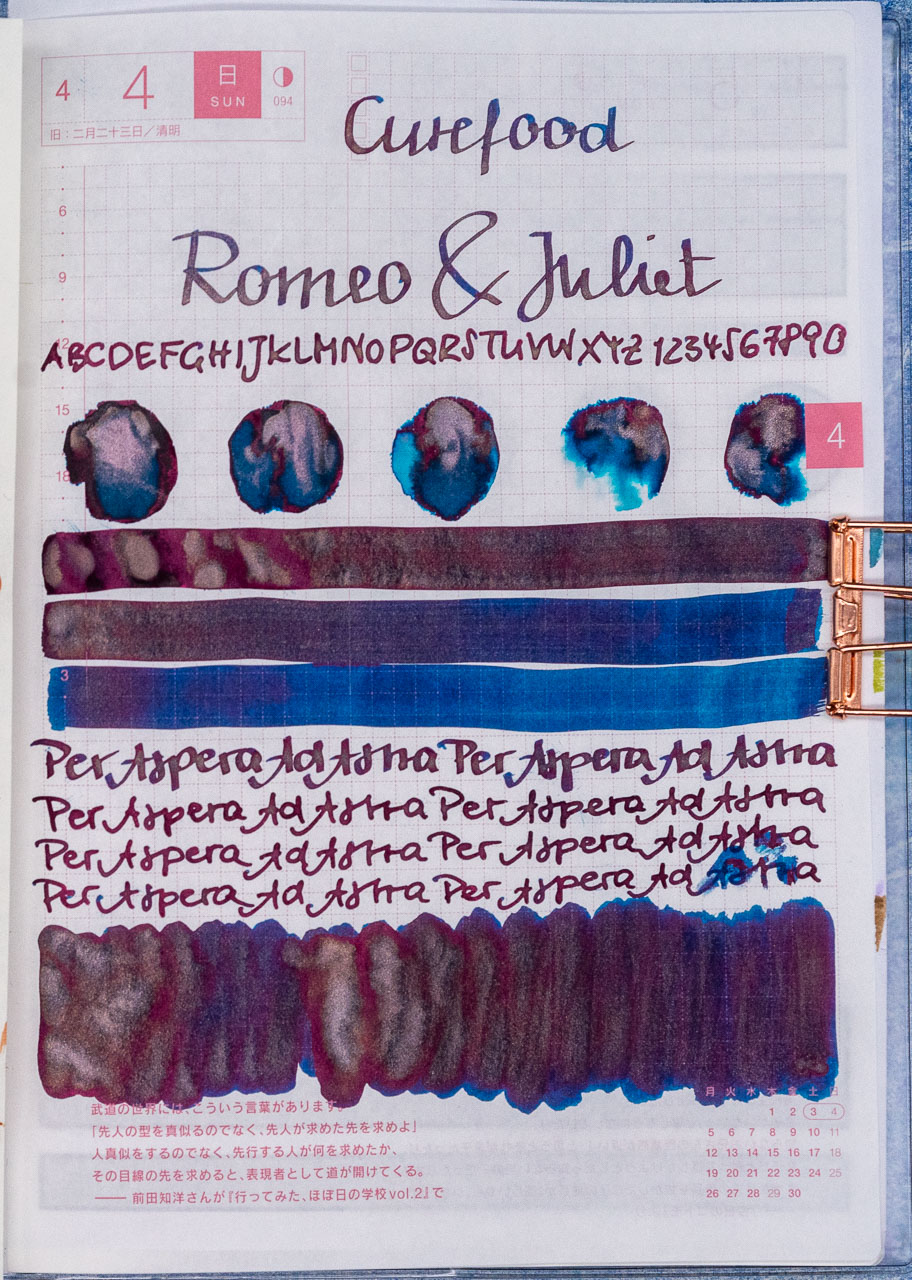 4 4 日 SUN 094
旧:二月二十三日／清明
Curefood
6
Romeo & Juliet
9
12
ABCDEFGHIJKLMNOPQRSTUVWXYZ 1234567890
15
4
18
3
Per Aspera Ad Astra Per Aspera Ad Astra
Per Aspera Ad Astra Per Aspera Ad Astra
Per Aspera Ad Astra Per Aspera Ad Astra
Per Aspera Ad Astra Per Aspera Ad Astra
武道の世界には、こういう言葉があります。
「先人の型を真似るのでなく、先人が求めた先を求めよ」
人真似をするのでなく、先行する人が何を求めたか、
その目線の先を求めると、表現者として道が開けてくる。
—— 前田知洋さんが『行ってみた、ほぼ日の学校vol.2』で
月 火 水 木 金 土 日
1 2 3 4
5 6 7 8 9 10 11
12 13 14 15 16 17 18
19 20 21 22 23 24 25
26 27 28 29 30